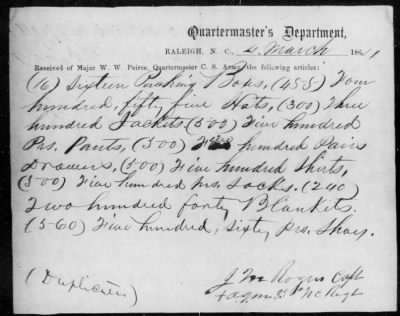 Quartermaster's Department,
RALEIGH, N. C., 4 March 1864,
Received of Major W. W. Peirce, Quartermaster C. S. Army, the following articles:
(16) Sixteen Packing Boxes, (455) Four
hundred, fifty five Hats, (300) Three
hundred Jackets, (500) Five hundred
Prs. Pants, (500) Five hundred Pairs
Drawers, (500) Five hundred Shirts,
(500) Five hundred prs Socks. (240)
Two hundred forty Blankets.
(560) Five hundred, Sixty Prs. Shoes.
J M Rogers Capt
(Duplicates)
& aqm 35th NC Regt